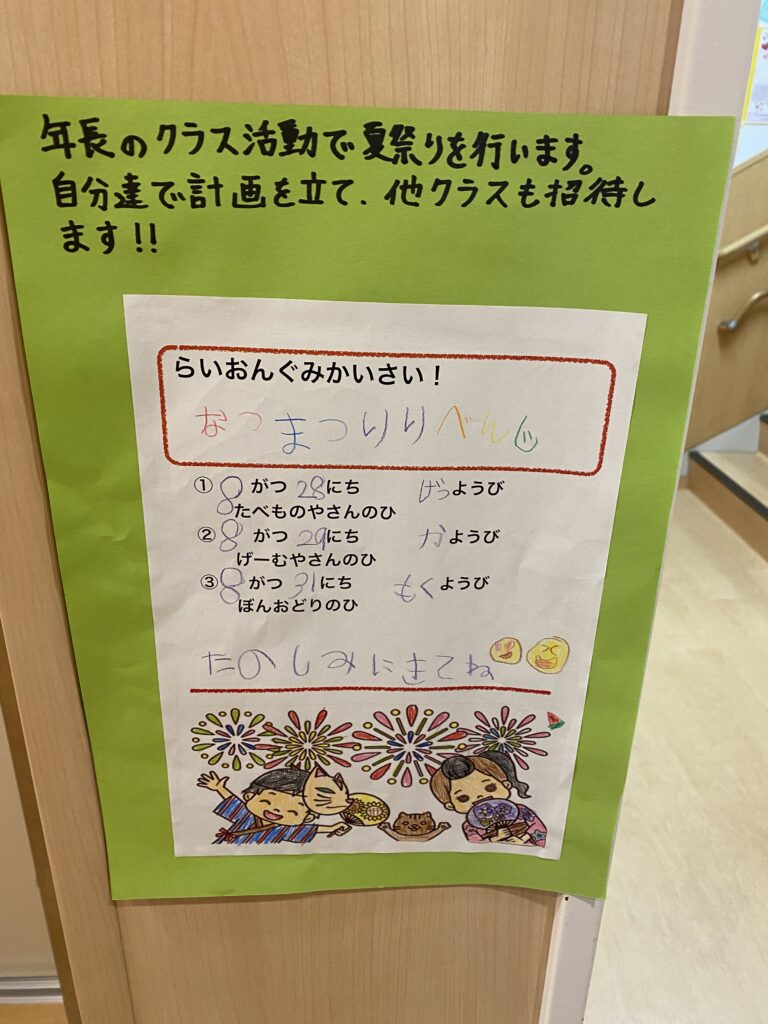 年長のクラス活動で夏祭りを行います。
自分達で計画を立て、他クラスも招待し
ます!!
らいおんぐみかいさい!
なつまつりりべん
① 8がつ 28にち げつようび
たべものやさんのひ
② 8がつ 29にち かようび
げーむやさんのひ
③ 8がつ 31にち もくようび
ぼんおどりのひ
たのしみにきてね